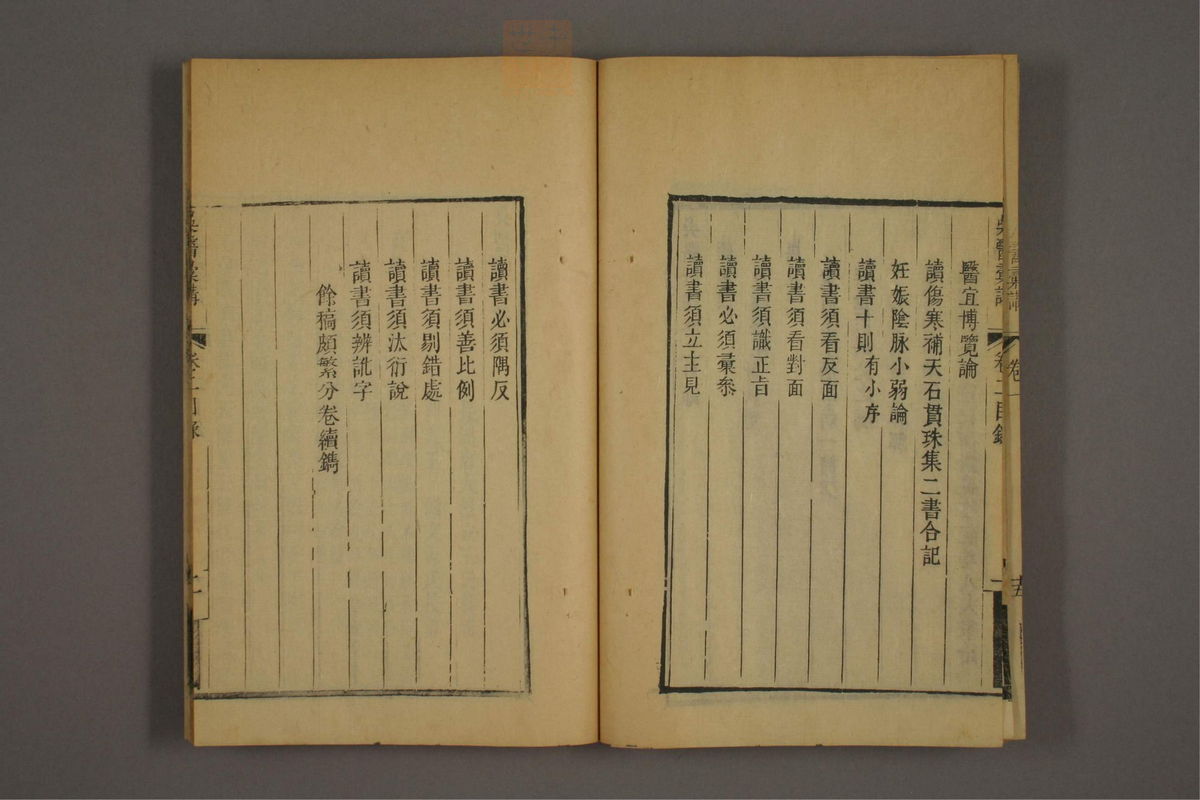 醫宜博覽論
讀傷寒補天石貫珠集二書合記
妊娠陰脉小弱論
讀書十則有小序
讀書須看反面
讀書須看對面
讀書須識正旨
讀書必須彙叅
讀書須立主見
讀書必須隅反
讀書須善比例
讀書須剔錯處
讀書須汰衍說
讀書須辨訛字
餘稿頗繁分卷續鐫
吳醫彙講
卷二目錄